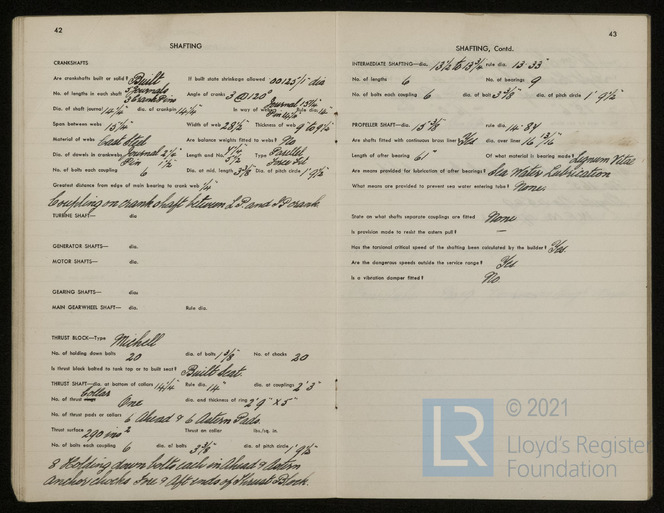 42
SHAFTING
CRANKSHAFTS
Are crankshafts built or solid? Built If built state shrinkage allowed .00125/1" dia
No. of lengths in each shaft 3 Journals 3 Crank Pins Angle of cranks 3 @ 120° In way of Journal Pin Rule dia.
Dia. of shaft journal 14 1/4" dia. of crankpin 14 1/4"
Span between webs Width of web 28 1/2" Thickness of web
Material of webs Cast Steel Are balance weights fitted to webs? No
Dia. of dowels in crankwebs Journal Pin Length and No. Type Parallel
No. of bolts each coupling 6 Dia. at mid. length 3 5/8 Dia. of pitch circle 1' 9 1/2"
Greatest distance from edge of main bearing to crank web
Coupling on crank shaft between L.P. and crank
TURBINE SHAFT— dia.
GENERATOR SHAFTS— dia.
MOTOR SHAFTS— dia.
GEARING SHAFTS— dia.
MAIN GEARWHEEL SHAFT— dia. Rule dia.
THRUST BLOCK—Type Michell
No. of holding down bolts 20 dia. of bolts 1 3/8 No. of chocks 20
Is thrust block bolted to tank top or to built seat? Built Seat.
THRUST SHAFT—dia. at bottom of collars 14 1/4" Rule dia. 14" dia. at couplings 2' 3"
No. of thrust Collar One dia. and thickness of ring 2' 9" x 5"
No. of thrust pads or collars 6 Ahead & 6 Astern Pads.
Thrust surface 290 ins² Thrust on collar lbs./sq. in.
No. of bolts each coupling 6 dia. of bolts 3 5/8" dia. of pitch circle 1' 9 1/2"
8 Holding down bolts each in Ahead & Astern
anchor chocks Fore & Aft ends of Thrust Block.
43
SHAFTING, Contd.
INTERMEDIATE SHAFTING—dia. 13 1/2 to 13 3/4 rule dia. 13.33"
No. of lengths 6 No. of bearings 9
No. of bolts each coupling 6 dia. of bolt 3 5/8" dia. of pitch circle 1' 9 1/2"
PROPELLER SHAFT—dia. 15 rule dia. 14.84
Are shafts fitted with continuous bronze liner? Yes dia. over liner 16
Length of after bearing 61" Of what material is bearing made? Lignum Vitae
Are means provided for lubrication of after bearings? Sea Water Lubrication
What means are provided to prevent sea water entering tube? None.
State on what shafts separate couplings are fitted None
Is provision made to resist the astern pull? —
Has the torsional critical speed of the shafting been calculated by the builder? Yes.
Are the dangerous speeds outside the service range? Yes
Is a vibration damper fitted? No
© 2021
LR
Lloyd's Register
Foundation